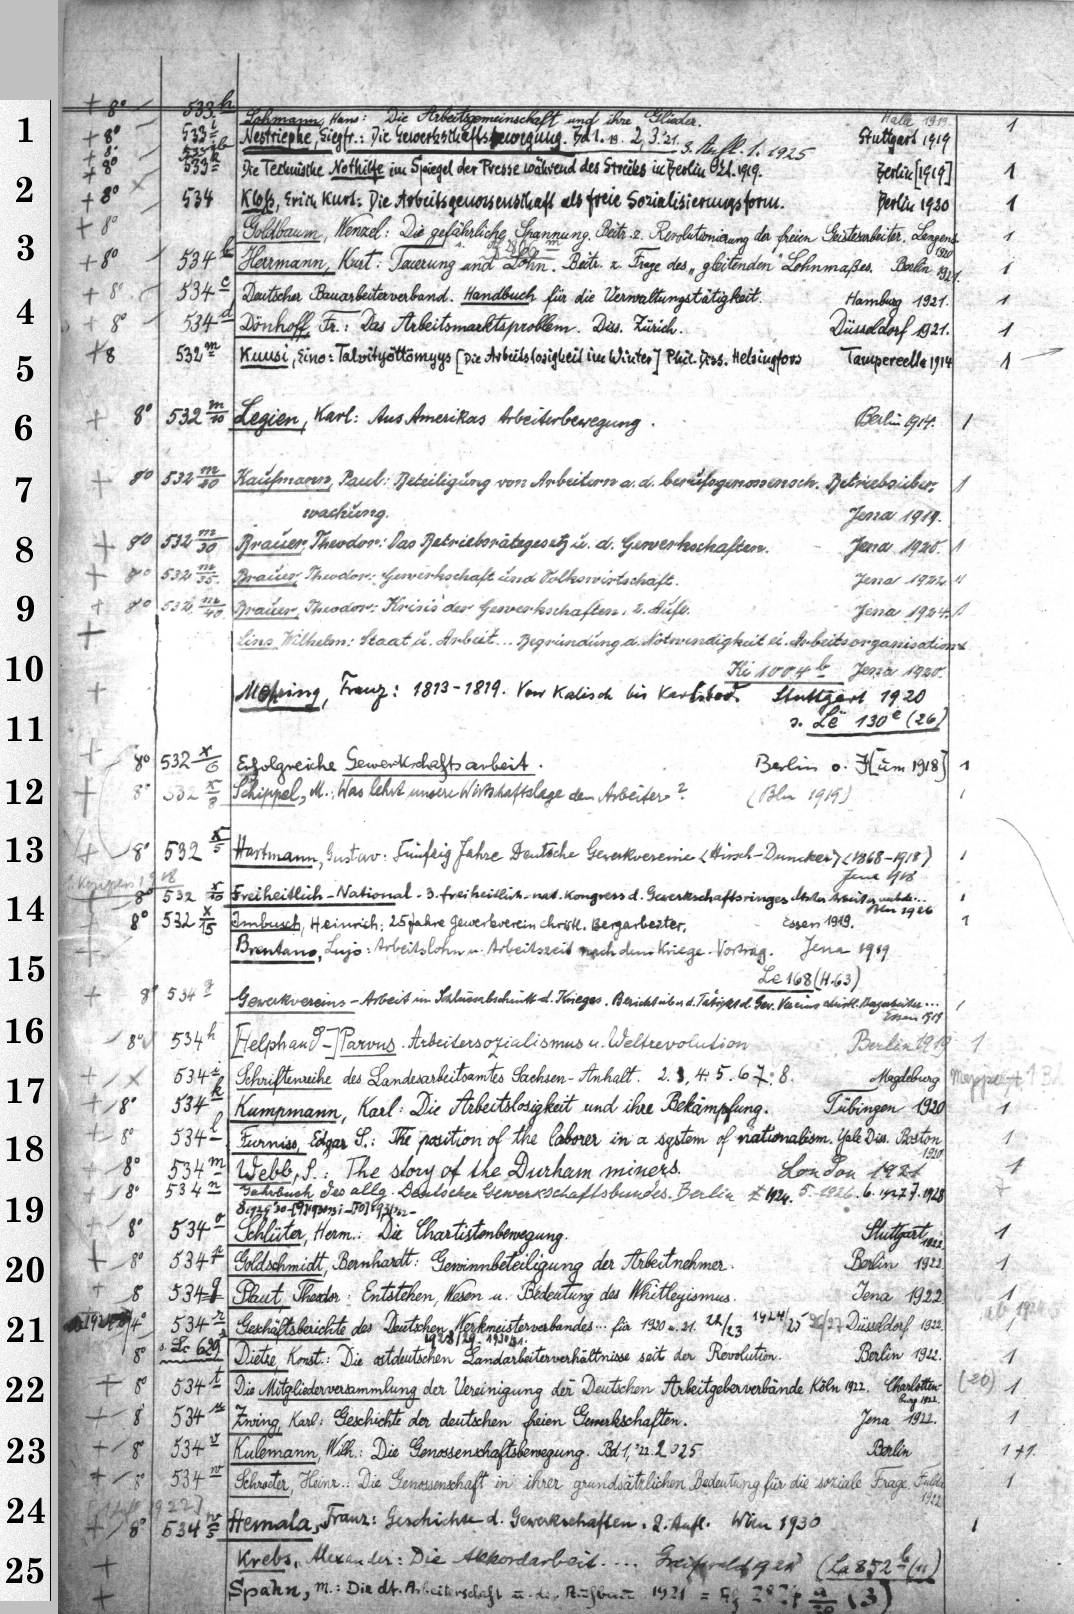 + 8° 533 h Lohmann, Hans: Die Arbeitsgemeinschaft und ihre Glieder. Halle 1919. 1
1 + 8° 533 i Nestriepke, Siegfr.: Die Gewerkschaftsbewegung. Bd 1. 19. 2, 3.'21. 3. Aufl. 1. 1925 Stuttgart 1919
+ 8° 533 k Die Technische Nothilfe im Spiegel der Presse während des Streiks in Berlin 1919. Berlin [1919] 1
2 + 8° 534 Kloß, Erich Kurt: Die Arbeitsgenossenschaft als freie Sozialisierungsform. Berlin 1920 1
+ 8° Goldbaum, Wenzel: Die gefährliche Spannung. Beitr. z. Revolutionierung der freien Geistesarbeiter. 1920 1
3 + 8° 534 b Herrmann, Kurt: Teuerung und Lohn. Beitr. z. Frage des "gleitenden" Lohnmaßes. Berlin 1921. 1
+ 8° 534 c Deutscher Bauarbeiterverband. Handbuch für die Verwaltungstätigkeit. Hamburg 1921. 1
4 + 8° 534 d Dönhoff, Fr.: Das Arbeitsmarktsproblem. Diss. Zürich. Düsseldorf 1921. 1
5 + 8 532 m Kuusi, Eino: Talvityöttömyys [Die Arbeitslosigkeit im Winter] Phil. Diss. Helsingfors Tampereella 1914 1
6 + 8° 532 m/10 Legien, Karl: Aus Amerikas Arbeiterbewegung. Berlin 1914. 1
7 + 8° 532 m/20 Kaufmann, Paul: Beteiligung von Arbeitern a. d. berufsgenossensch. Betriebsüber-
wachung. Jena 1919. 1
8 + 8° 532 m/30 Brauer, Theodor: Das Betriebsrätegesetz u. d. Gewerkschaften. Jena 1920. 1
+ 8° 532 m/35. Brauer, Theodor: Gewerkschaft und Volkswirtschaft. Jena 1922
9 + 8° 532 m/40 Brauer, Theodor: Krisis der Gewerkschaften. 2. Aufl. Jena 1924. 1
+ Lins, Wilhelm: Staat u. Arbeit... Begründung d. Notwendigkeit ei. Arbeitsorganisation
10 Ki 1004 b Jena 1920.
+ Mehring, Franz: 1813-1819. Von Kalisch bis Karlsbad. Stuttgart 1920
11 s. Le 130 e (26)
+ 8° 532 x/6 Erfolgreiche Gewerkschaftsarbeit. Berlin o. J [um 1918] 1
12 + 8° 532 Schippel, M.: Was lehrt unsere Wirtschaftslage den Arbeiter? (Bln 1919) 1
13 + 8° 532 x/5 Hartmann, Gustav: Fünfzig Jahre Deutsche Gewerkvereine (Hirsch-Duncker) (1868-1918)
Jena 1918 1
14 8° 532 x/10 Freiheitlich-National - 3. freiheitlich-nat. Kongress d. Gewerkschaftsringes
Bln 1926 1
+ 8° 532 x/15 Imbusch, Heinrich: 25 Jahre Gewerkverein christl. Bergarbeiter. Essen 1919. 1
15 + Brentano, Lujo: Arbeitslohn u. Arbeitszeit nach dem Kriege. Vortrag. Jena 1919
Le 168 (H. 63)
+ 8° 534 g Gewerkvereins-Arbeit im d. Krieges. Bericht über d. Tätigk. d. Gew. Vereins christl. Bergarbeiter...
Essen 1919 1
16 8° 534 h [Helphand-] Parvus. Arbeitersozialismus u. Weltrevolution Berlin 1919 1
17 + 534 i Schriftenreihe des Landesarbeitsamtes Sachsen-Anhalt. 2. 3, 4. 5. 6 7. 8. Magdeburg Mappe
+ 8° 534 k Kumpmann, Karl: Die Arbeitslosigkeit und ihre Bekämpfung. Tübingen 1920 1
18 + 8° 534 l Furniss, Edgar S.: The position of the laborer in a system of nationalism. Yale Diss. Boston 1920 1
+ 8° 534 m Webb, S.: The story of the Durham miners. London 1921 1
19 + 8° 534 n Jahrbuch des allg. Deutschen Gewerkschaftsbundes. Berlin 1924. 5. 1926. 6. 1927 7. 1928
+ 8° 534 o Schlüter, Herm.: Die Chartistenbewegung. Stuttgart 1922. 1
20 + 8° 534 p Goldschmidt, Bernhardt: Gewinnbeteiligung der Arbeitnehmer. Berlin 1922. 1
+ 8 534 q Plaut, Theodor: Entstehen, Wesen u. Bedeutung des Whitleyismus. Jena 1922. 1
21 4° 534 r Geschäftsberichte des Deutschen Werkmeisterverbandes... für 1920 u. 21. 22/23 1924/25 26/27 Düsseldorf 1922.
1928/29. 1930/31.
8° s. Le 629 Dietze, Konst.: Die ostdeutschen Landarbeiterverhältnisse seit der Revolution. Berlin 1922. 1
22 + 8° 534 t Die Mitgliederversammlung der Vereinigung der Deutschen Arbeitgeberverbände Köln 1922. Charlottenburg 1922. (20) 1
+ 8 534 u Zwing, Karl: Geschichte der deutschen freien Gewerkschaften. Jena 1922. 1
23 + 8 534 v Kulemann, Wilh.: Die Genossenschaftsbewegung. Bd 1, '22. 2 '25 Berlin 1+1.
+ 8° 534 w Schröter, Heinr.: Die Genossenschaft in ihrer grundsätzlichen Bedeutung für die soziale Frage. Fulda 1922 1
24 + 8° 534 w/5 Hemala, Franz: Geschichte d. Gewerkschaften. 2. Aufl. Wien 1930 1
25 + Krebs, Alexander: Die Akkordarbeit.... Greifswald (La 852 b (11)
+ Spahn, M.: Die dt. Arbeiterschaft u. d. Aufbau 1921 = (3)